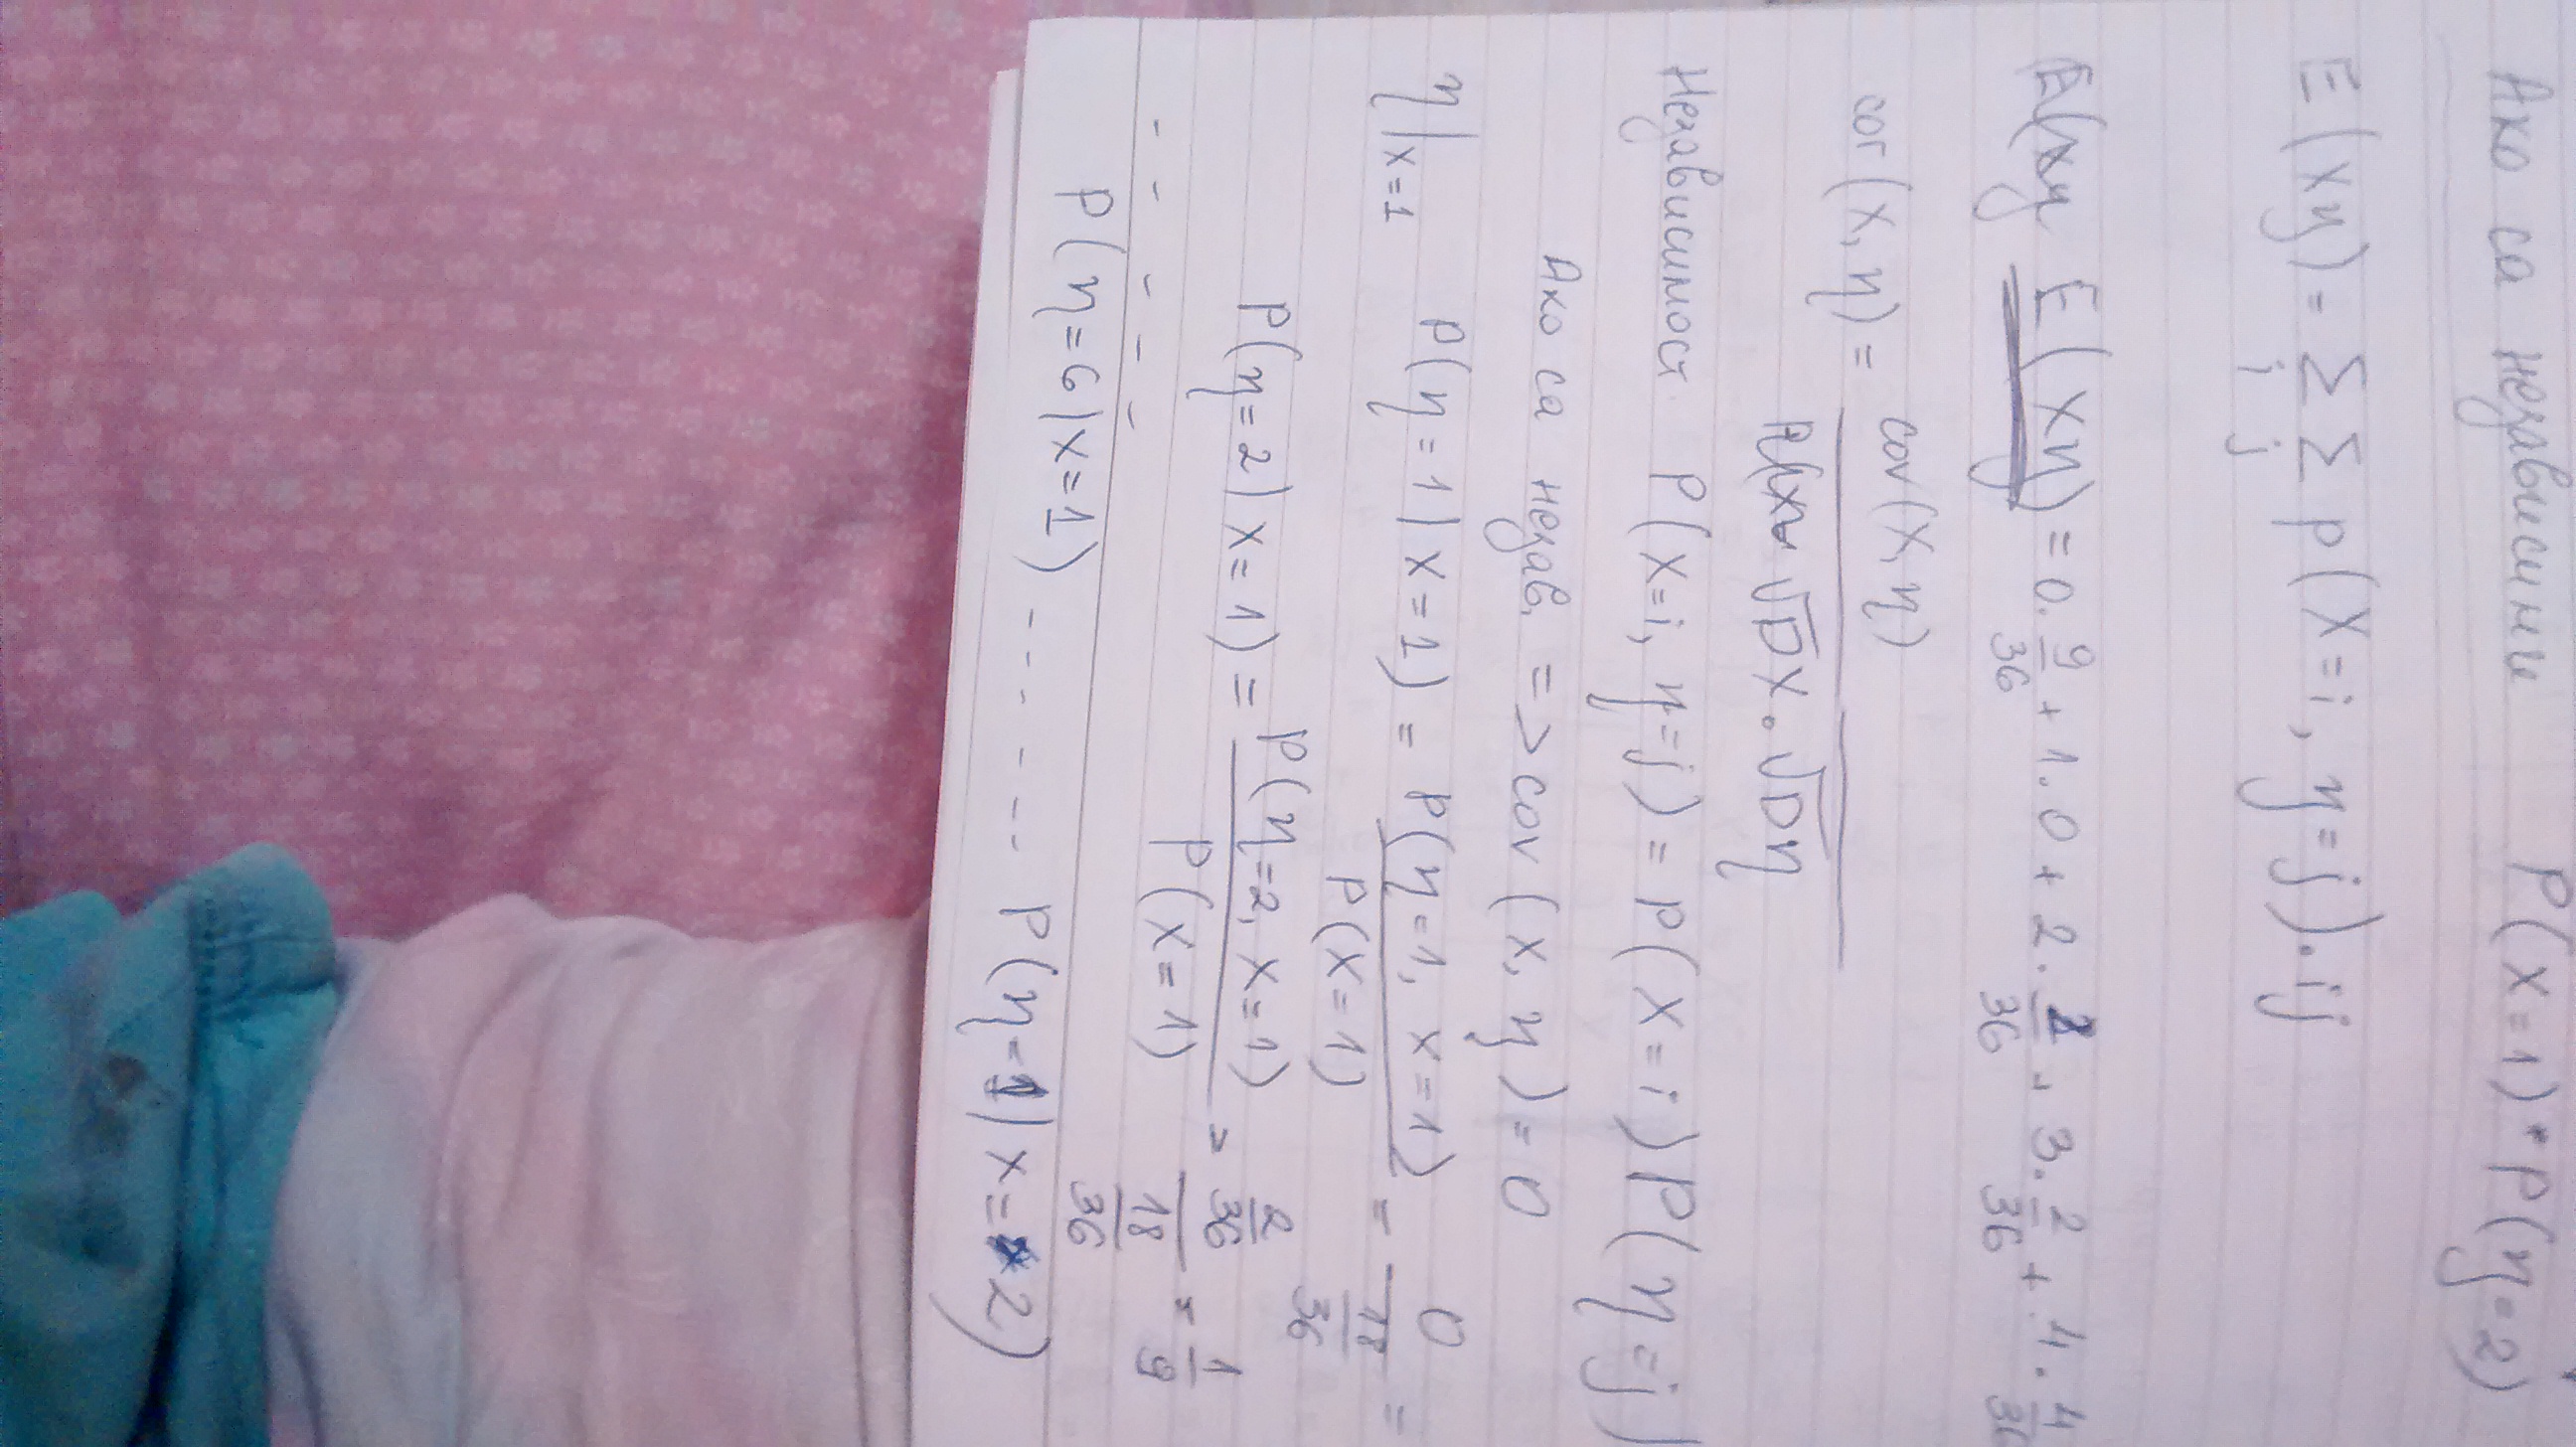 Ако са независими P(x=1)*P(η=2)
E(xη) = Σ Σ P(X=i, η=j).ij
i j
E(xη) = 0. 9/36 + 1.0 + 2. 2/36 + 3. 2/36 + 4. 4/36
cor(x,η) = cov(x,η) / √DX . √Dη
Независимост P(x=i, η=j) = P(x=i)P(η=j)
Ако са незав. => cov(x,η) = 0
η|x=1 P(η=1|x=1) = P(η=1, x=1) / P(x=1) = 0 / 18/36 =
P(η=2|x=1) = P(η=2, x=1) / P(x=1) = 2/36 / 18/36 = 1/9
- - - - -
P(η=6|x=1) - - - - - - P(η=1|x=2)